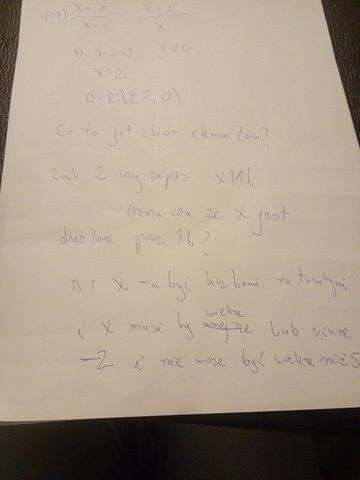 x+8 / x-2 = x+5 / x
x-2=0 x≠0
x=2
D: R\{2,0\
Co to jest zbiór elementów?
Zad 2 czy zapis x|16
oznacza że x jest
dzielone przez 16?
B: X ma być liczbami naturalnymi
i X musi by większe lub równe
-2 i nie może być większe niż 5